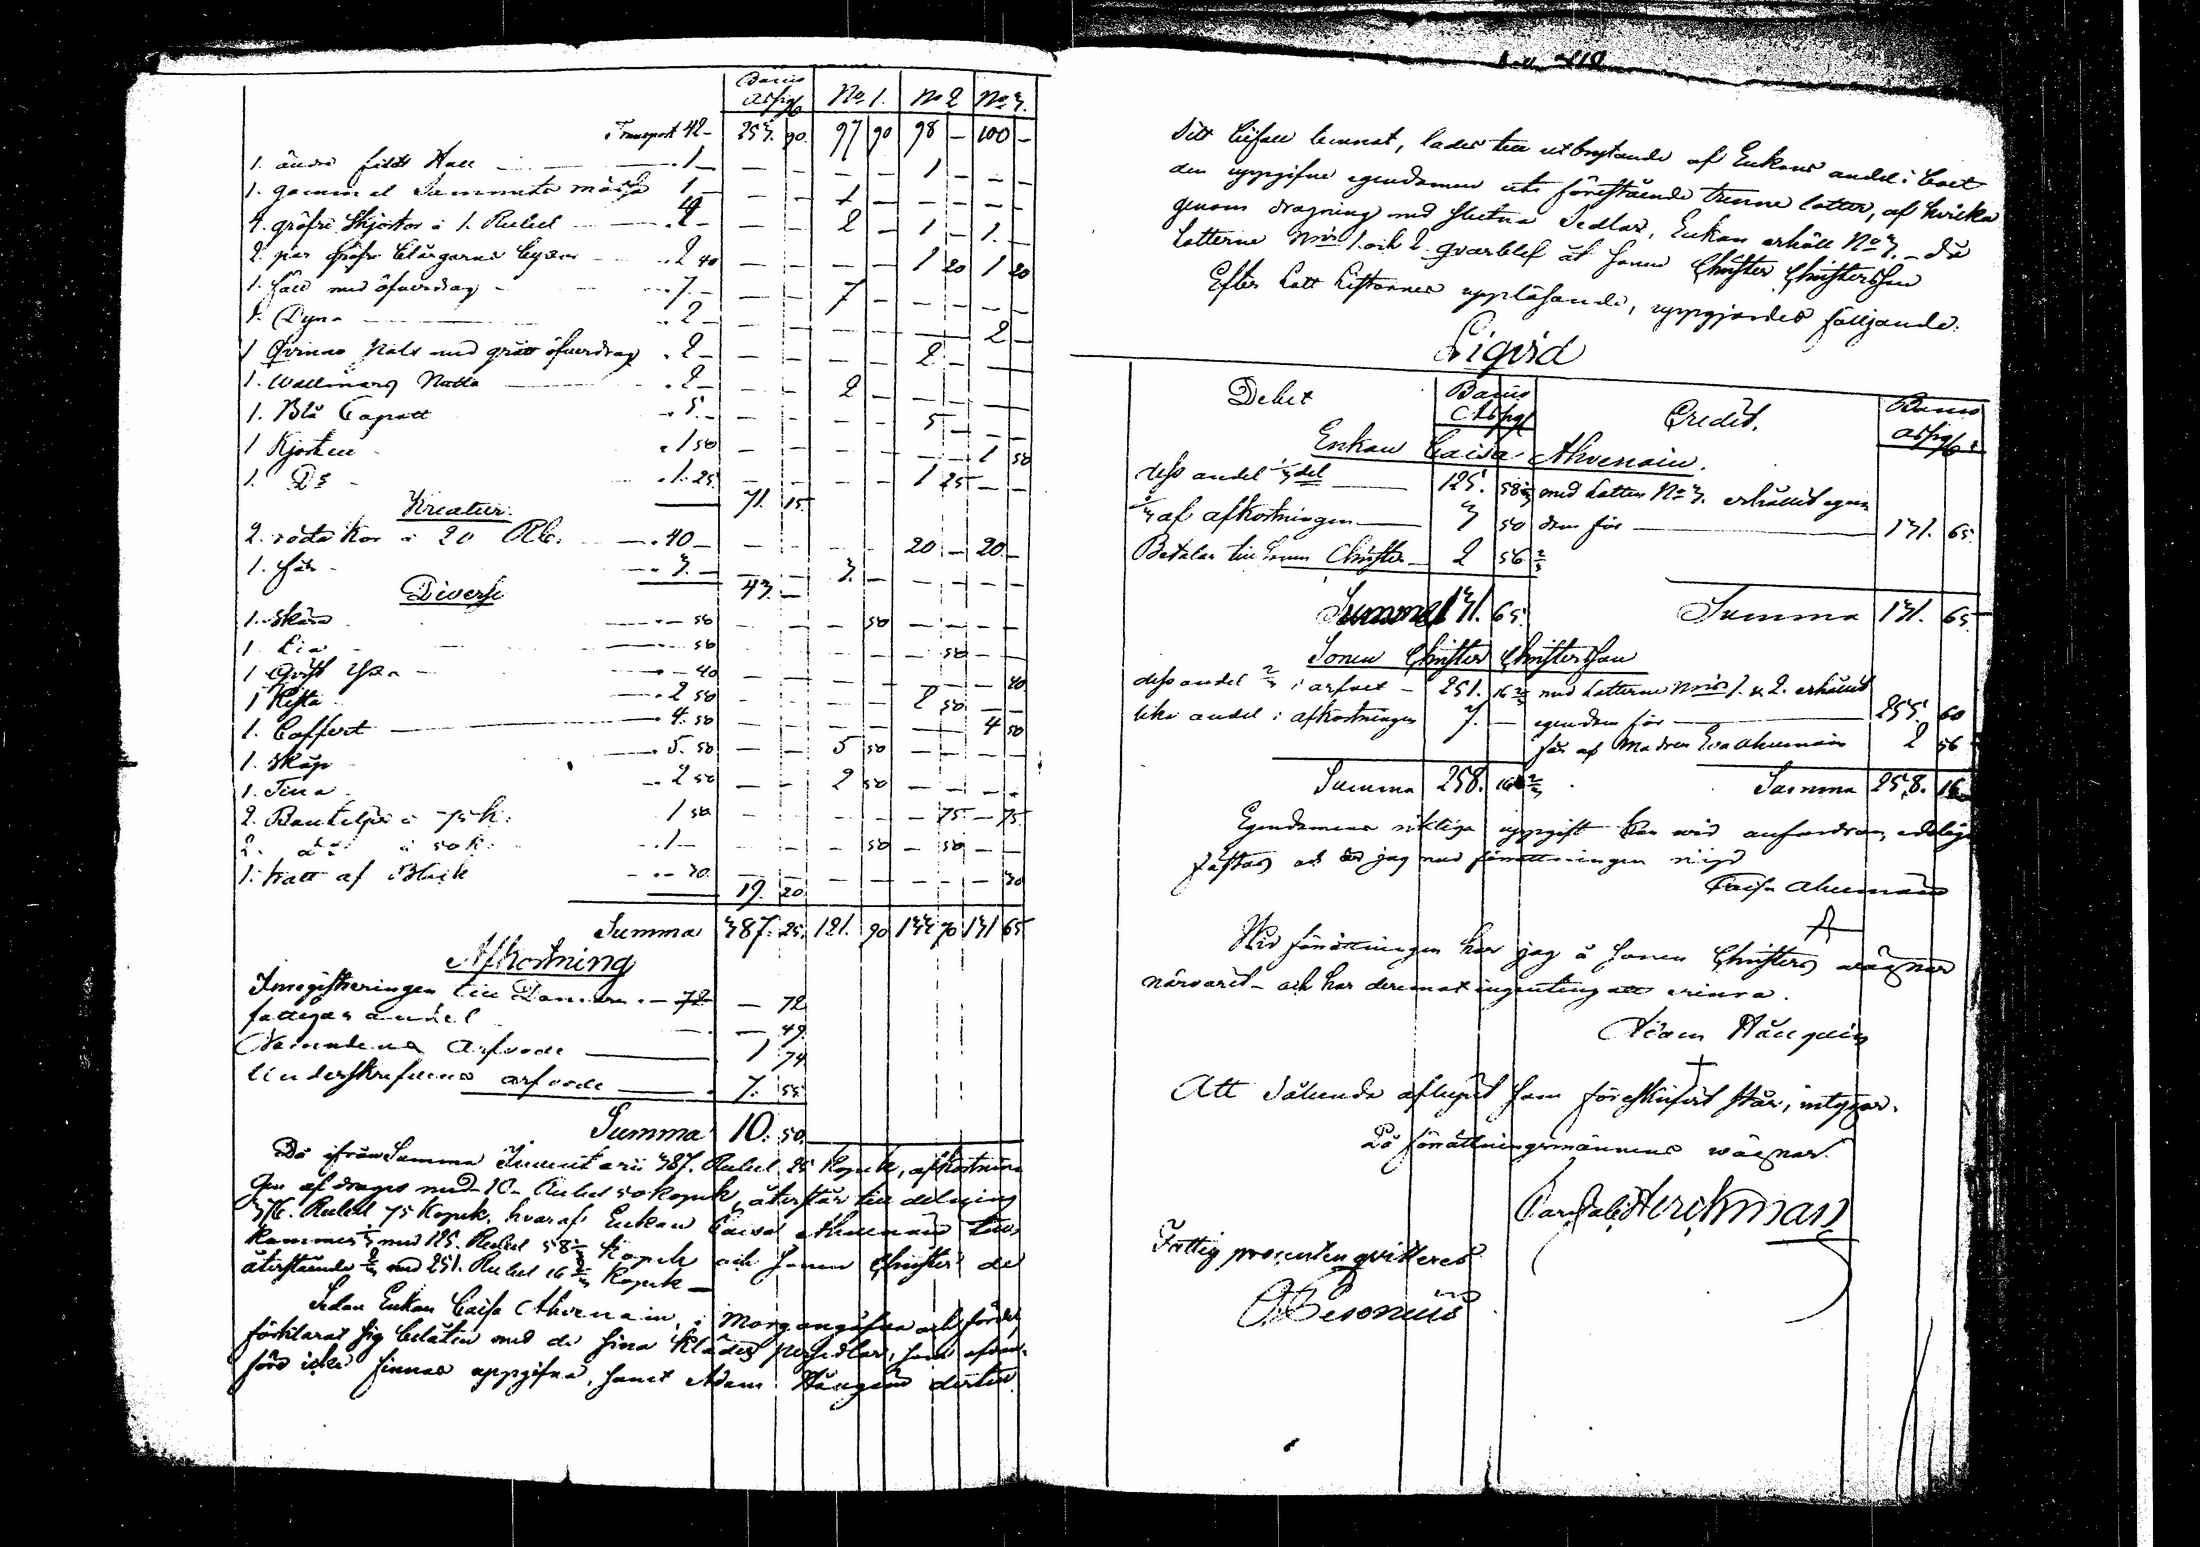 Banco Assign No 1. No 2 No 3.
Transport 42 – 253. 90. 97 90 98 – 100 –
1. ändre – – 1 – – – – – 1 – – –
1. gammal Sammets mössa 1 – – – 1 – – – – –
4. gröfre Skjortor á 1. Rubel – 4 – – – 2 – 1 – 1. –
2. par gröfre Blårgarns – 2 40 – – – – 1 20 1 20
1. Fäll med öfverdrag – 7 – – – 7 – – – – –
1. Dyna – 2 – – – – – – – 2 –
1 Qvinno Päls med grått öfverdrag . 2 – – – – – 2 – – –
1. Wallmars – 2 – – – 2 – – – – –
1. Blå Capott – 5. – – – – – 5 – – –
1 Kjortell . 1 50 – – – – – – 1 50
1. Do – . 1. 25. – – – – 1 25 – –
71. 15.
Kreatur.
2. röda Kor á 20 Rub. – . 40 – – – – – 20 – 20. –
1. får – 3. – – – 3. – – – – –
43. –
Diverse
1. Skära – 50 – – – 50 – – – –
1. Lia – 50 – – – – – 50 – –
1 – 40 – – – – – – – 40
1 Kista – 2 50 – – – – 2 50 – –
1. Coffert – 4. 50 – – – – – – 4 50
1. Skåp . 5. 50 – – 5 50 – – – –
1. Tina . 2 50 – – 2 50 – – – –
2. á 75 k. 1 50 – – – – – 75 – 75
2. do á 50 k. – 1 – – – – 50 – 50 – –
1. hatt af Bläck – 30 – – – – – – – 30
19. 20
Summa 387. 25. 121. 90 133 70 131 65
Afkortning
Inregistreringen till Domaren – 72 – 72
fattigas andel – 49.
Nämndens Arfvode 1 74
Underskrifvens arfvode 7. 55
Summa 10. 50.
Då ifrån Summa Inventarii 387. Rubel 25 Kopek, afkortnin
gen afdrages med 10 – Rubel 50 kopek, återstår till delning
376. Rubel 75 Kopek. hvaraf Enkan Caisa Ahvenain till
kommer 1/3 med 125. Rubel 58 1/3 Kopek och Sonen Christer de
återstående 2/3 med 251. Rubel 16 2/3 Kopek –
Sedan Enkan Caisa Ahvenain, i Morgongåfva och fördel,
förklarat sig belåten med de sina Klädes persedlar, som ofvan-
före icke finnas uppgifna, samt Adam dertill
Sitt bifall lemnat, lades till utbrytande af Enkans andel i boet
den uppgifne egendomen uti förestående trenne lotter, af hvilka
genom dragning med slutna Sedlar, Enkan erhöll No 3. – då
Lotterne Nris 1. och 2. qvarblef åt Sonen Christer Christersson
Efter Lott Listornes uppläsande, uppgjordes följande.
Liqvid
Debet Banco Assign Credit. Banco Assign
Enkan Caisa Ahvenain.
dess andel 1/3 del 125. 58 1/3 med Lotten No 3. erhållit egen
1/3 af afkortningen 3 50 dom för 131. 65.
Betalar till Sonen Christer – 2 56 2/3
Summa 131. 65. Summa 131. 65
Sonen Christer Christersson
dess andel 2/3 i arfvet – 251. 16 2/3 med Lotterne Nris 1. & 2. erhållit
lika andel i afkortningen 7. – egendom för 255. 60
får af Modren Eva Ahvenain 2 56
Summa 258. 16 2/3 Summa 258. 16
Egendomens riktiga uppgift kan wid anfordran, edeligen
fästas och är jag med förrättningen nöjd
Caisa Ahvenain
Wid förrättningen har jag å Sonen Christers wägnar
närvarit – och har deremot ingenting att erinra.
Adam
Att Sålunda aflupit som föreskrifvit står, intygar.
På förrättningsmännens wägnar.
Herckman
Fattig procenten qvitteras